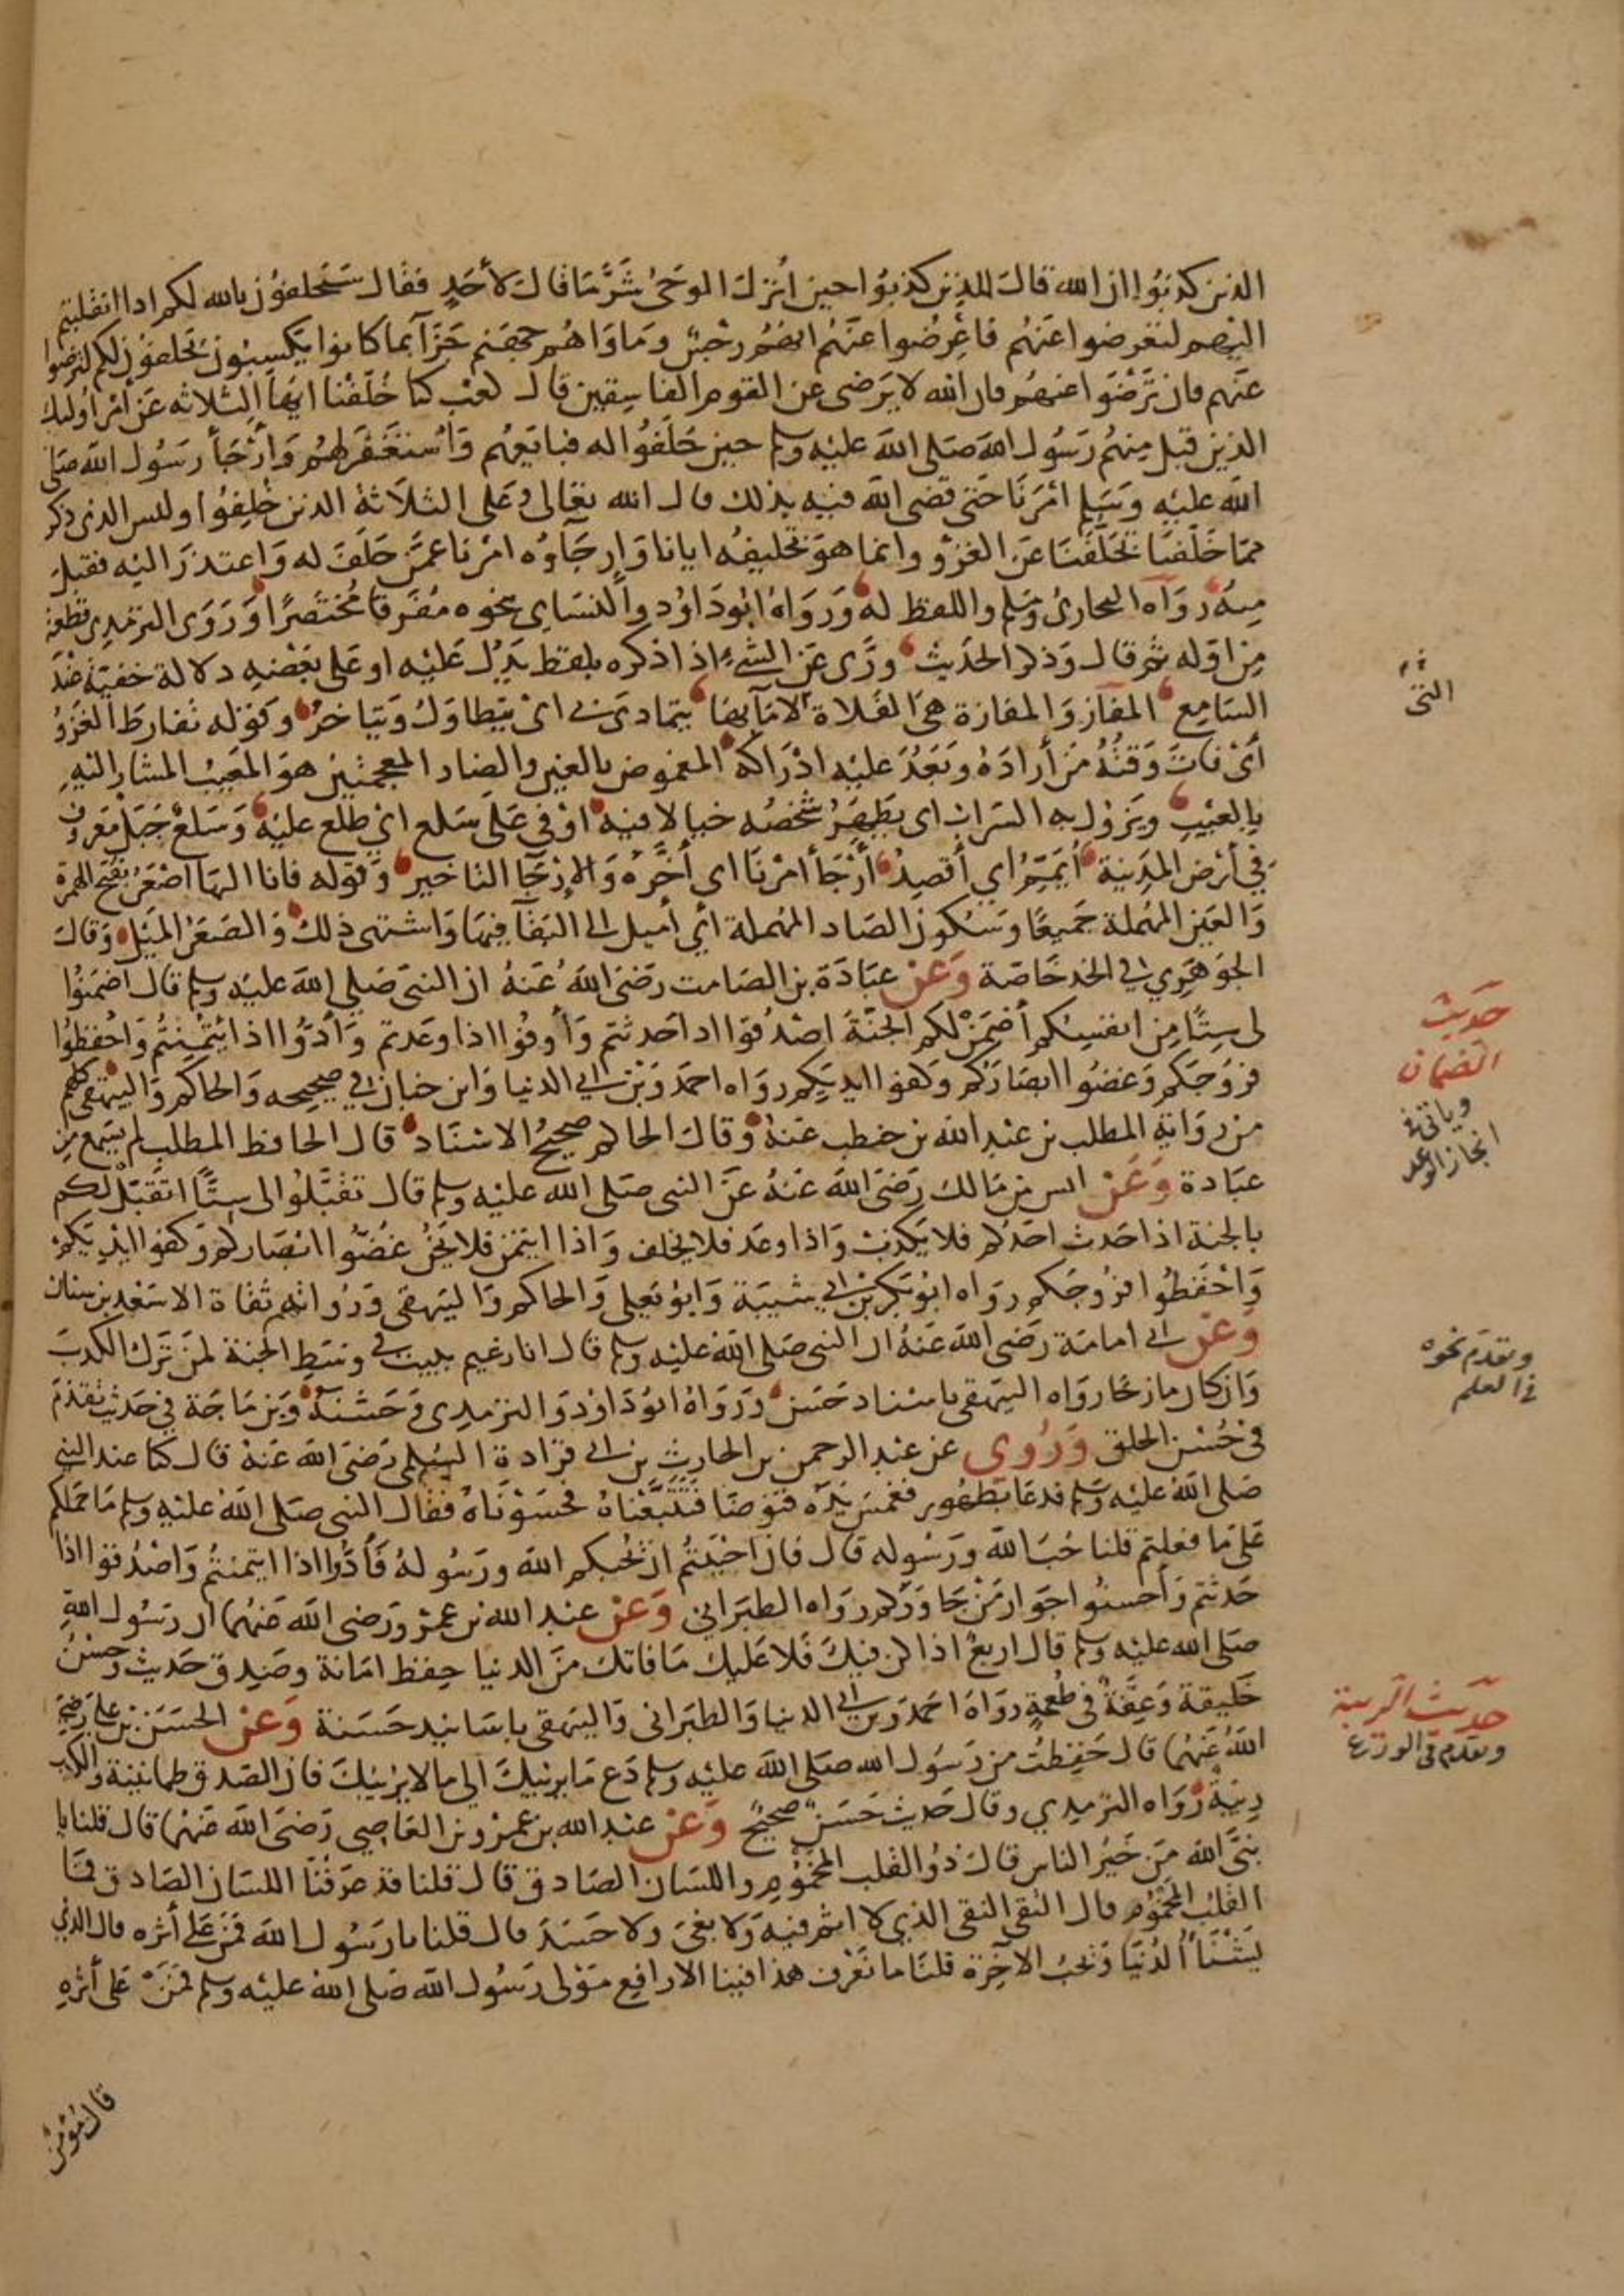 الذين كذبوا ان الله قال للذين كذبوا حين انزل الوحي شر ما قال لأحد فقال سيحلفون بالله لكم اذا انقلبتم
اليهم لتعرضوا عنهم فاعرضوا عنهم انهم رجس وماواهم جهنم جزآ بما كانوا يكسبون يحلفون لكم لترضوا
عنهم فان ترضوا عنهم فان الله لا يرضى عن القوم الفاسقين قال كعب كنا خلفنا ايها الثلاثه عن أمر اوليك
الذين قبل منهم رسول الله صلى الله عليه وسلم حين حلفوا له فبايعهم واستغفر لهم وارجأ رسول الله صلى
الله عليه وسلم امرنا حتى قضى الله فيه بذلك قال الله تعالى وعلى الثلاثة الذين خلفوا وليس الذى ذكر
مما خلفنا تخلفنا عن الغزو وانما هو تخليفه ايانا وارجآوه امرنا عمن حلف له واعتذر اليه فقبل
منه رواه البخارى ومسلم واللفظ له ورواه ابو داود والنساى بنحوه مفرقا مختصرا وروى الترمذى قطعة
من اوله ثم قال وذكر الحديث ورى عن الشيء اذا ذكره بلفظ يدل عليه او على بعضه دلالة خفية عند
السامع المفاز والمفازة هى الفلاة لا مآ بها يتمادى بى اى يتطاول ويتاخر وقوله تفارط الغزو
أى فات وقته من أراده وبعد عليه ادراكه المغموض بالغين والضاد المعجمتين هو المعيب المشار اليه
بالعيب ويزول به السراب اى يظهر شخصه خيالا فيه اوفى على سلع اي طلع عليه وسلع جبل معروف
في أرض المدينة أيمم أي أقصد أرجأ امرنا اى أخره والارجآ التاخير وقوله فانا اليها اصعر بفتح الهمزة
والعين المهملة جميعا وسكون الصاد المهملة أي أميل الى البقآ فيها واشتهى ذلك والصعر الميل وقال
الجوهري في الخد خاصة وعن عبادة بن الصامت رضى الله عنه ان النبى صلى الله عليه وسلم قال اضمنوا
لى ستا من انفسكم أضمن لكم الجنة اصدقوا اذا حدثتم وأوفوا اذا وعدتم وأدوا اذا ائتمنتم واحفظوا
فروجكم وغضوا ابصاركم وكفوا ايديكم رواه احمد وبن ابى الدنيا وابن حبان في صحيحه والحاكم والبيهقى كلهم
من رواية المطلب بن عبد الله بن حنطب عنه وقال الحاكم صحيح الاسناد قال الحافظ المطلب لم يسمع من
عبادة وعن انس بن مالك رضى الله عنه عن النبى صلى الله عليه وسلم قال تقبلوا لى ستا اتقبل لكم
بالجنة اذا حدث احدكم فلا يكذب واذا وعد فلا يخلف واذا ايتمن فلا يخن غضوا ابصاركم وكفوا ايديكم
واحفظوا فروجكم رواه ابو بكر بن ابي شيبة وابو يعلى والحاكم والبيهقى ورواتهم ثقاة الا سعد بن سنان
وعن ابى امامة رضى الله عنه ان النبى صلى الله عليه وسلم قال انا زعيم ببيت في وسط الجنة لمن ترك الكذب
وان كان مازحا رواه البيهقى باسناد حسن ورواه ابو داود والترمذى وحسنه وبن ماجة في حديث تقدم
فى حسن الخلق وروي عن عبد الرحمن بن الحارث بن ابى قرادة السلمى رضى الله عنه قال كنا عند النبى
صلى الله عليه وسلم فدعا بطهور فغمس يده فتوضا فتتبعناه فحسوناه فقال النبى صلى الله عليه وسلم ما حملكم
على ما فعلتم قلنا حب الله ورسوله قال فان احببتم ان يحبكم الله ورسوله فأدوا اذا ايتمنتم واصدقوا اذا
حدثتم وأحسنوا جوار من جاوركم رواه الطبرانى وعن عبد الله بن عمرو رضى الله عنهما ان رسول الله
صلى الله عليه وسلم قال اربع اذا كن فيك فلا عليك ما فاتك من الدنيا حفظ امانة وصدق حديث وحسن
خليقة وعفة فى طعمة رواه احمد وبن ابى الدنيا والطبرانى والبيهقى باسانيد حسنة وعن الحسن بن على رضى
الله عنهما قال حفظت من رسول الله صلى الله عليه وسلم دع ما يريبك الى ما لا يريبك فان الصدق طمانينة والكذب
ريبة رواه الترمذي وقال حديث حسن صحيح وعن عبد الله بن عمرو بن العاصي رضى الله عنهما قال قلنا يا
نبى الله من خير الناس قال ذو القلب المخموم واللسان الصادق قال قلنا قد عرفنا اللسان الصادق فما
القلب المخموم قال التقى النقى الذي لا اثم فيه ولا بغى ولا حسد قال قلنا يا رسول الله فمن على أثره قال الذي
يشنأ الدنيا ويحب الآخرة قلنا ما نعرف هذا فينا الا رافع مولى رسول الله صلى الله عليه وسلم فمن على أثره
قال مؤمن
حديث
الضمان
وياتى فى
انجاز الوعد
وتقدم نحوه
فى العلم
حديث الريبة
وتقدم فى الورع